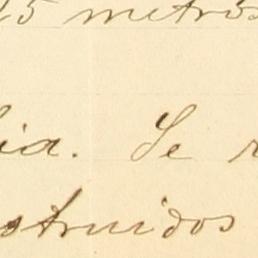 25 metros
lia. Se r
struidos